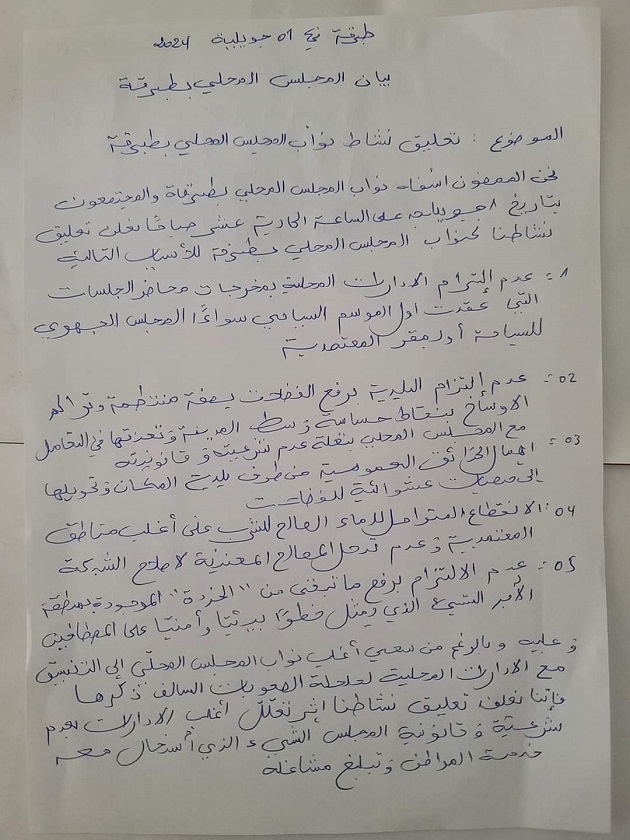 طبرقة في 01 جويلية 2024
بيان المجلس المحلي بطبرقة
الموضوع : تعليق نشاط نواب المجلس المحلي بطبرقة
نحن الممضون أسفله نواب المجلس المحلي بطبرقة والمجتمعون
بتاريخ 1 جويلية على الساعة الحادية عشر صباحا نعلن تعليق
نشاطنا كنواب المجلس المحلي بطبرقة للأسباب التالية
1 : عدم إلتزام الادارات المحلية بمخرجات محاضر الجلسات
التي عقدت اول الموسم السياحي سواءا المجلس الجهوي
للسياحة أو لمقر المعتمدية
02 : عدم إلتزام البلدية برفع الفضلات بصفة منتظمة وتراكم
الاوساخ بنقاط حساسة وسط المدينة و تعنتها في التعامل
مع المجلس المحلي بتعلة عدم شرعيته و قانونيته
03 : اهمال الحدائق العمومية من طرف بلدية المكان و تحويلها
إلى مصبات عشوائية للفضلات
04 : الانقطاع المتواصل للماء الصالح للشرب على أغلب مناطق
المعتمدية و عدم تدخل المصالح المعنية لاصلاح الشبكة
05 : عدم الالتزام برفع ما تبقى من "الخردة" الموجودة بمنطقة
الأمر الشيء الذي يمثل خطرا بيئيا و أمنيا على المصطافين
و عليه و بالرغم من سعي أغلب نواب المجلس المحلي إلى التنسيق
مع الادارات المحلية لحلحلة الصعوبات السالف ذكرها
فإننا نعلن تعليق نشاطنا إثر تعلل أغلب الادارات بعدم
شرعية و قانونية المجلس الشيء الذي أستحال معه
خدمة المواطن و تبليغ مشاغله